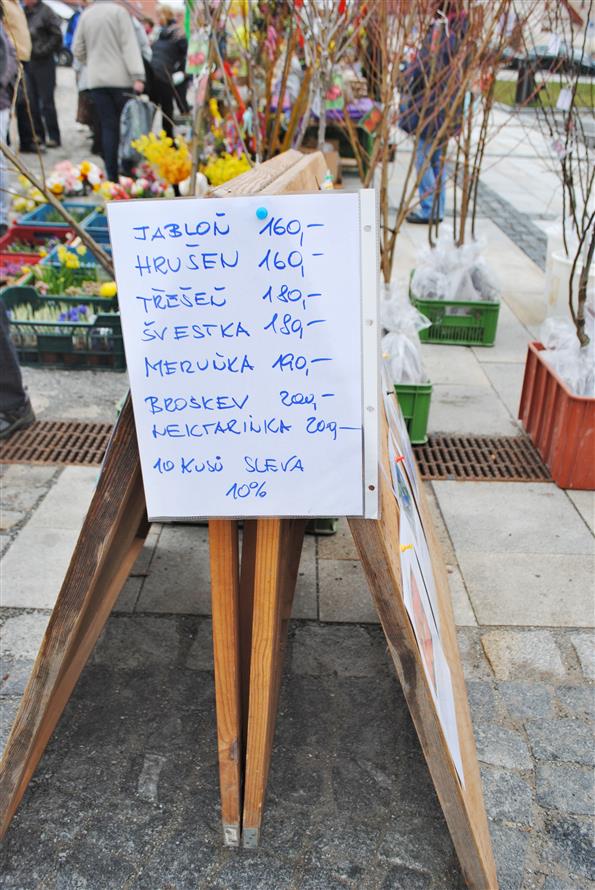 JABLOŇ 160,-
HRUŠEŇ 160,-
TŘEŠEŇ 180,-
ŠVESTKA 180,-
MERUŇKA 190,-
BROSKEV 200,-
NEKTARINKA 200,-
10 KUSŮ SLEVA
10%